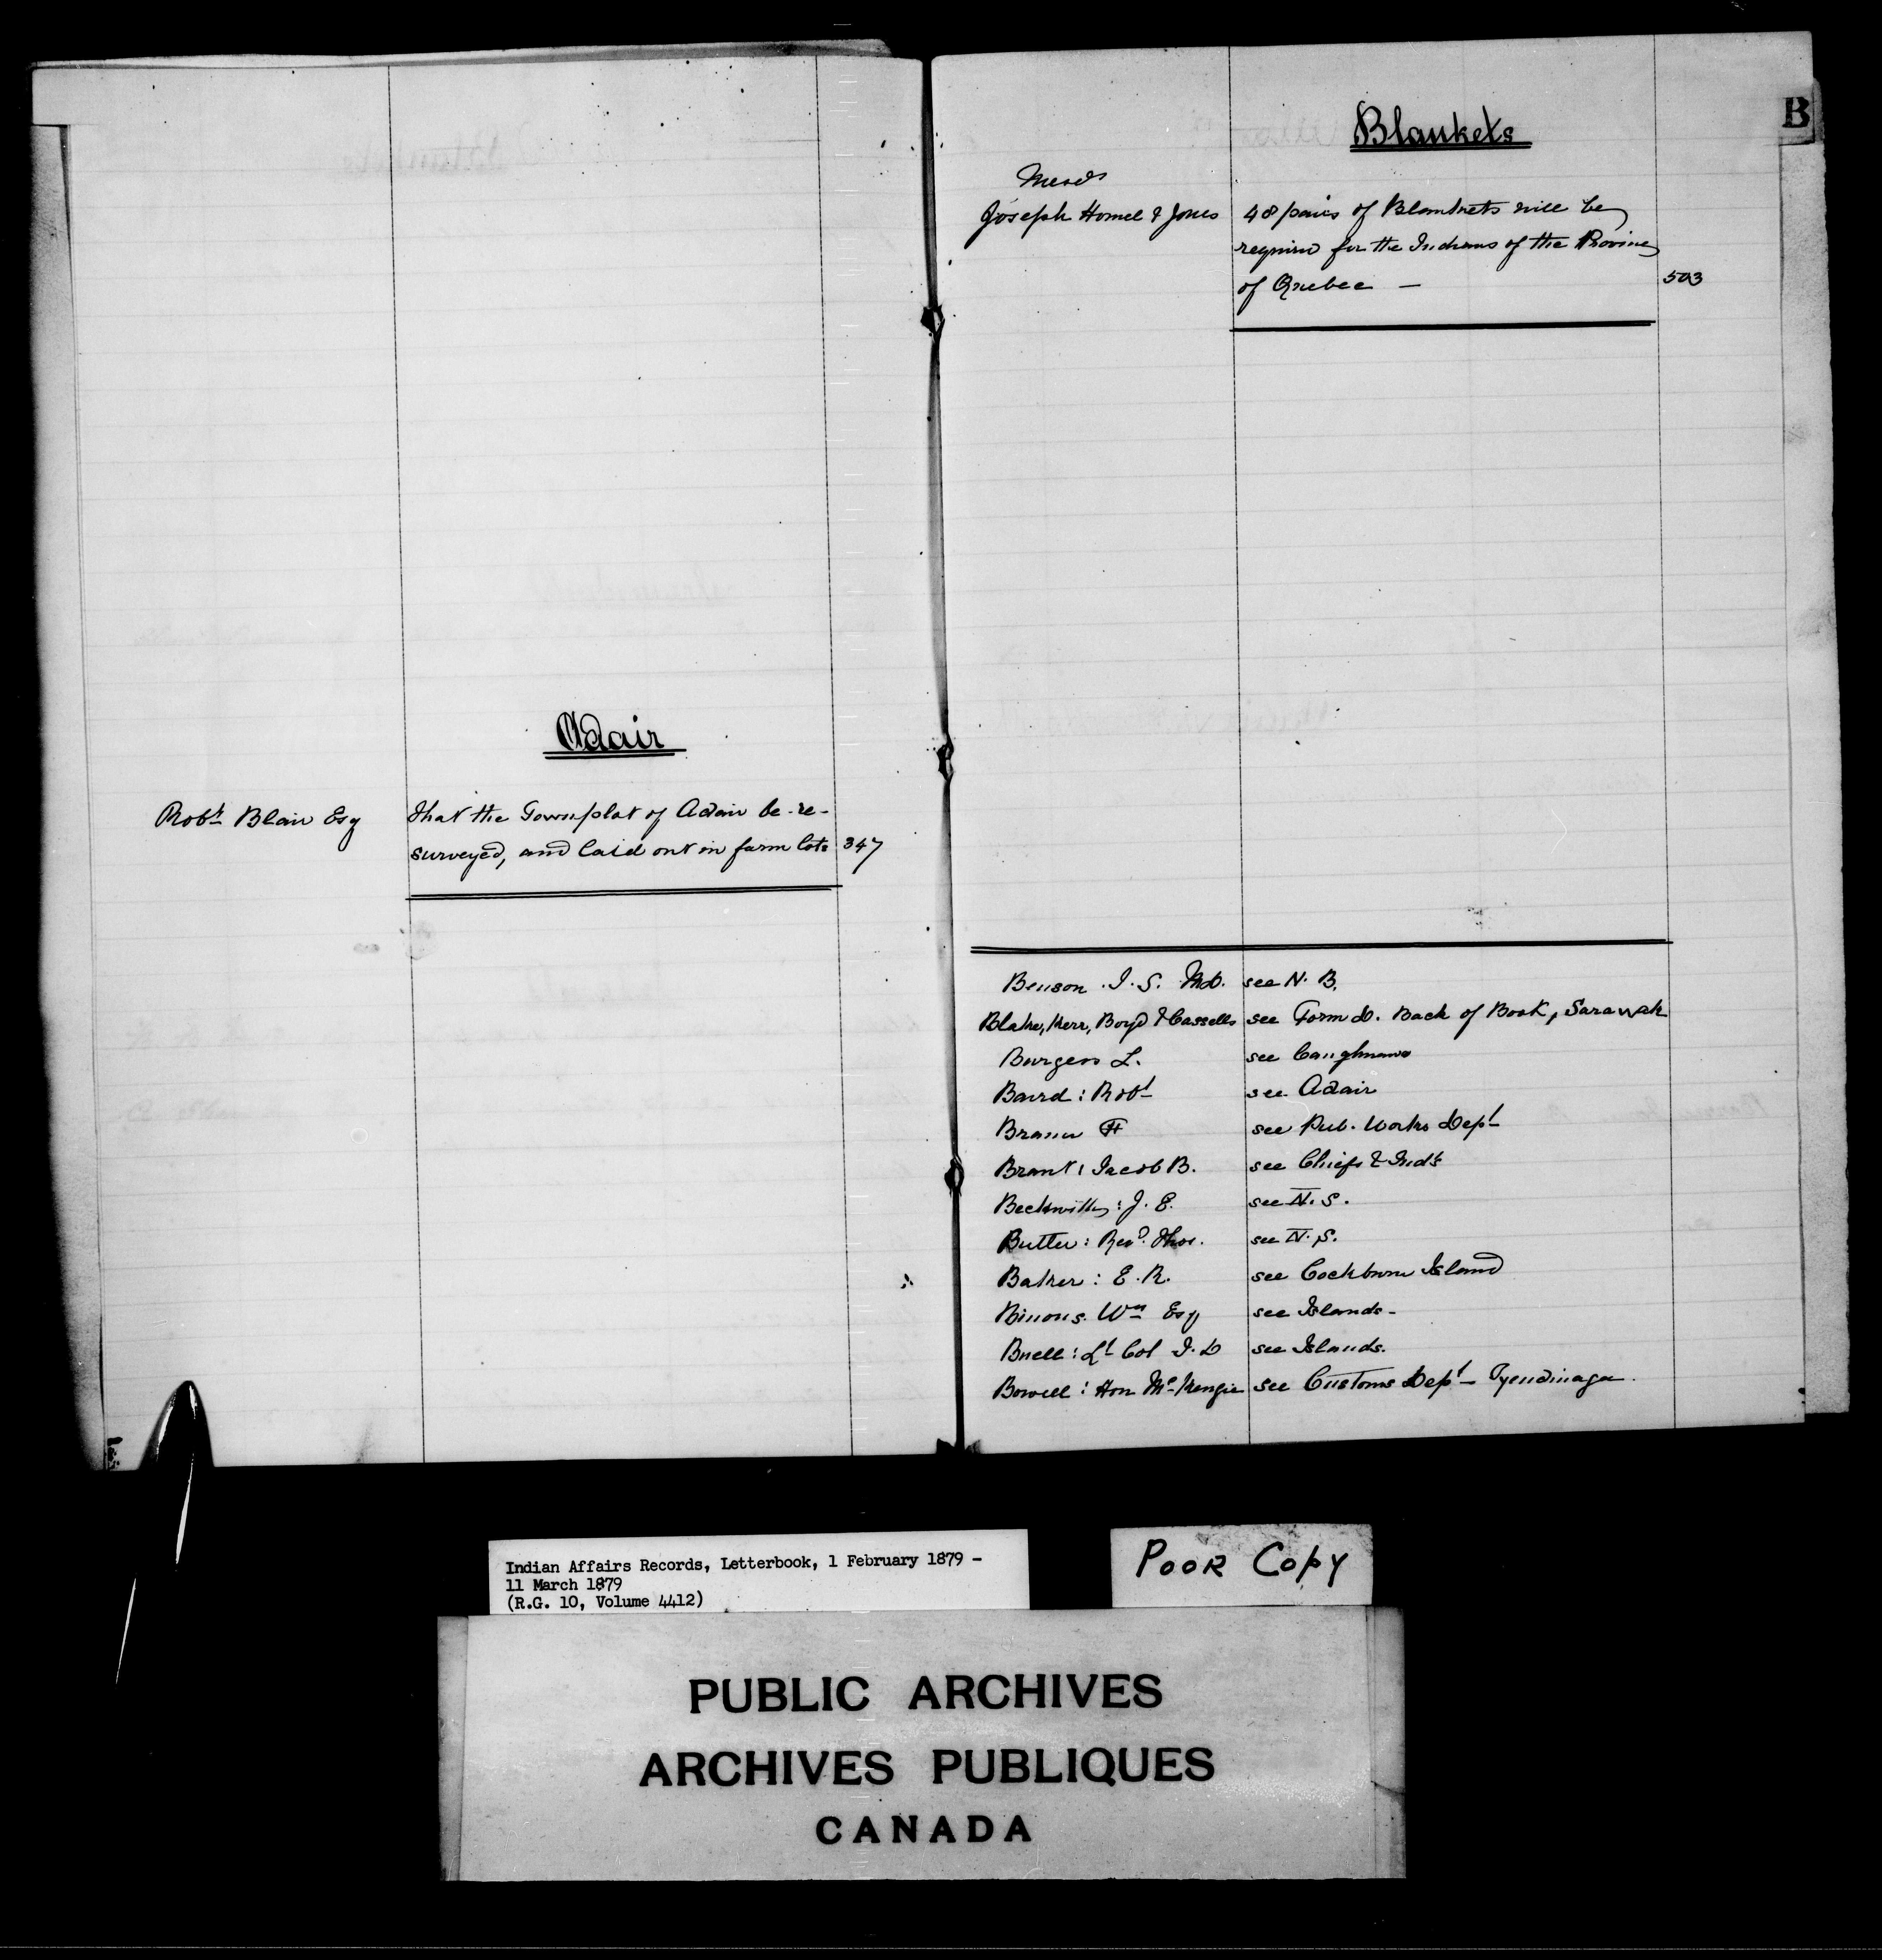 Adair
Robt Blair Esq
That the Townplot of Adair be re-
surveyed, and laid out in farm lots 347
B
Blankets
Messrs
Joseph Hamel & Jones
48 pairs of Blankets will be
required for the Indians of the Province
of Quebec — 503
Benson I. S. MD. see N. B.
Blake, Kerr, Boyd & Cassells see Form D. Back of Book, Sarawak
Burgess L. see
Baird: Robt see Adair
Braun F see Pub. Works Dept
Brant: Jacob B. see Chiefs & Inds
Beckwith: J. E. see N. S.
Butler: Revd. Thos. see N. S.
Baker: E. R. see Cockburn Island
Wm Esq see Islands-
Buell: Lt Col J. D see Islands.
Bowell: Hon McKenzie see Customs Dept - Tyendinaga.
Indian Affairs Records, Letterbook, 1 February 1879 -
11 March 1879
(R.G. 10, Volume 4412)
POOR COPY
PUBLIC ARCHIVES
ARCHIVES PUBLIQUES
CANADA